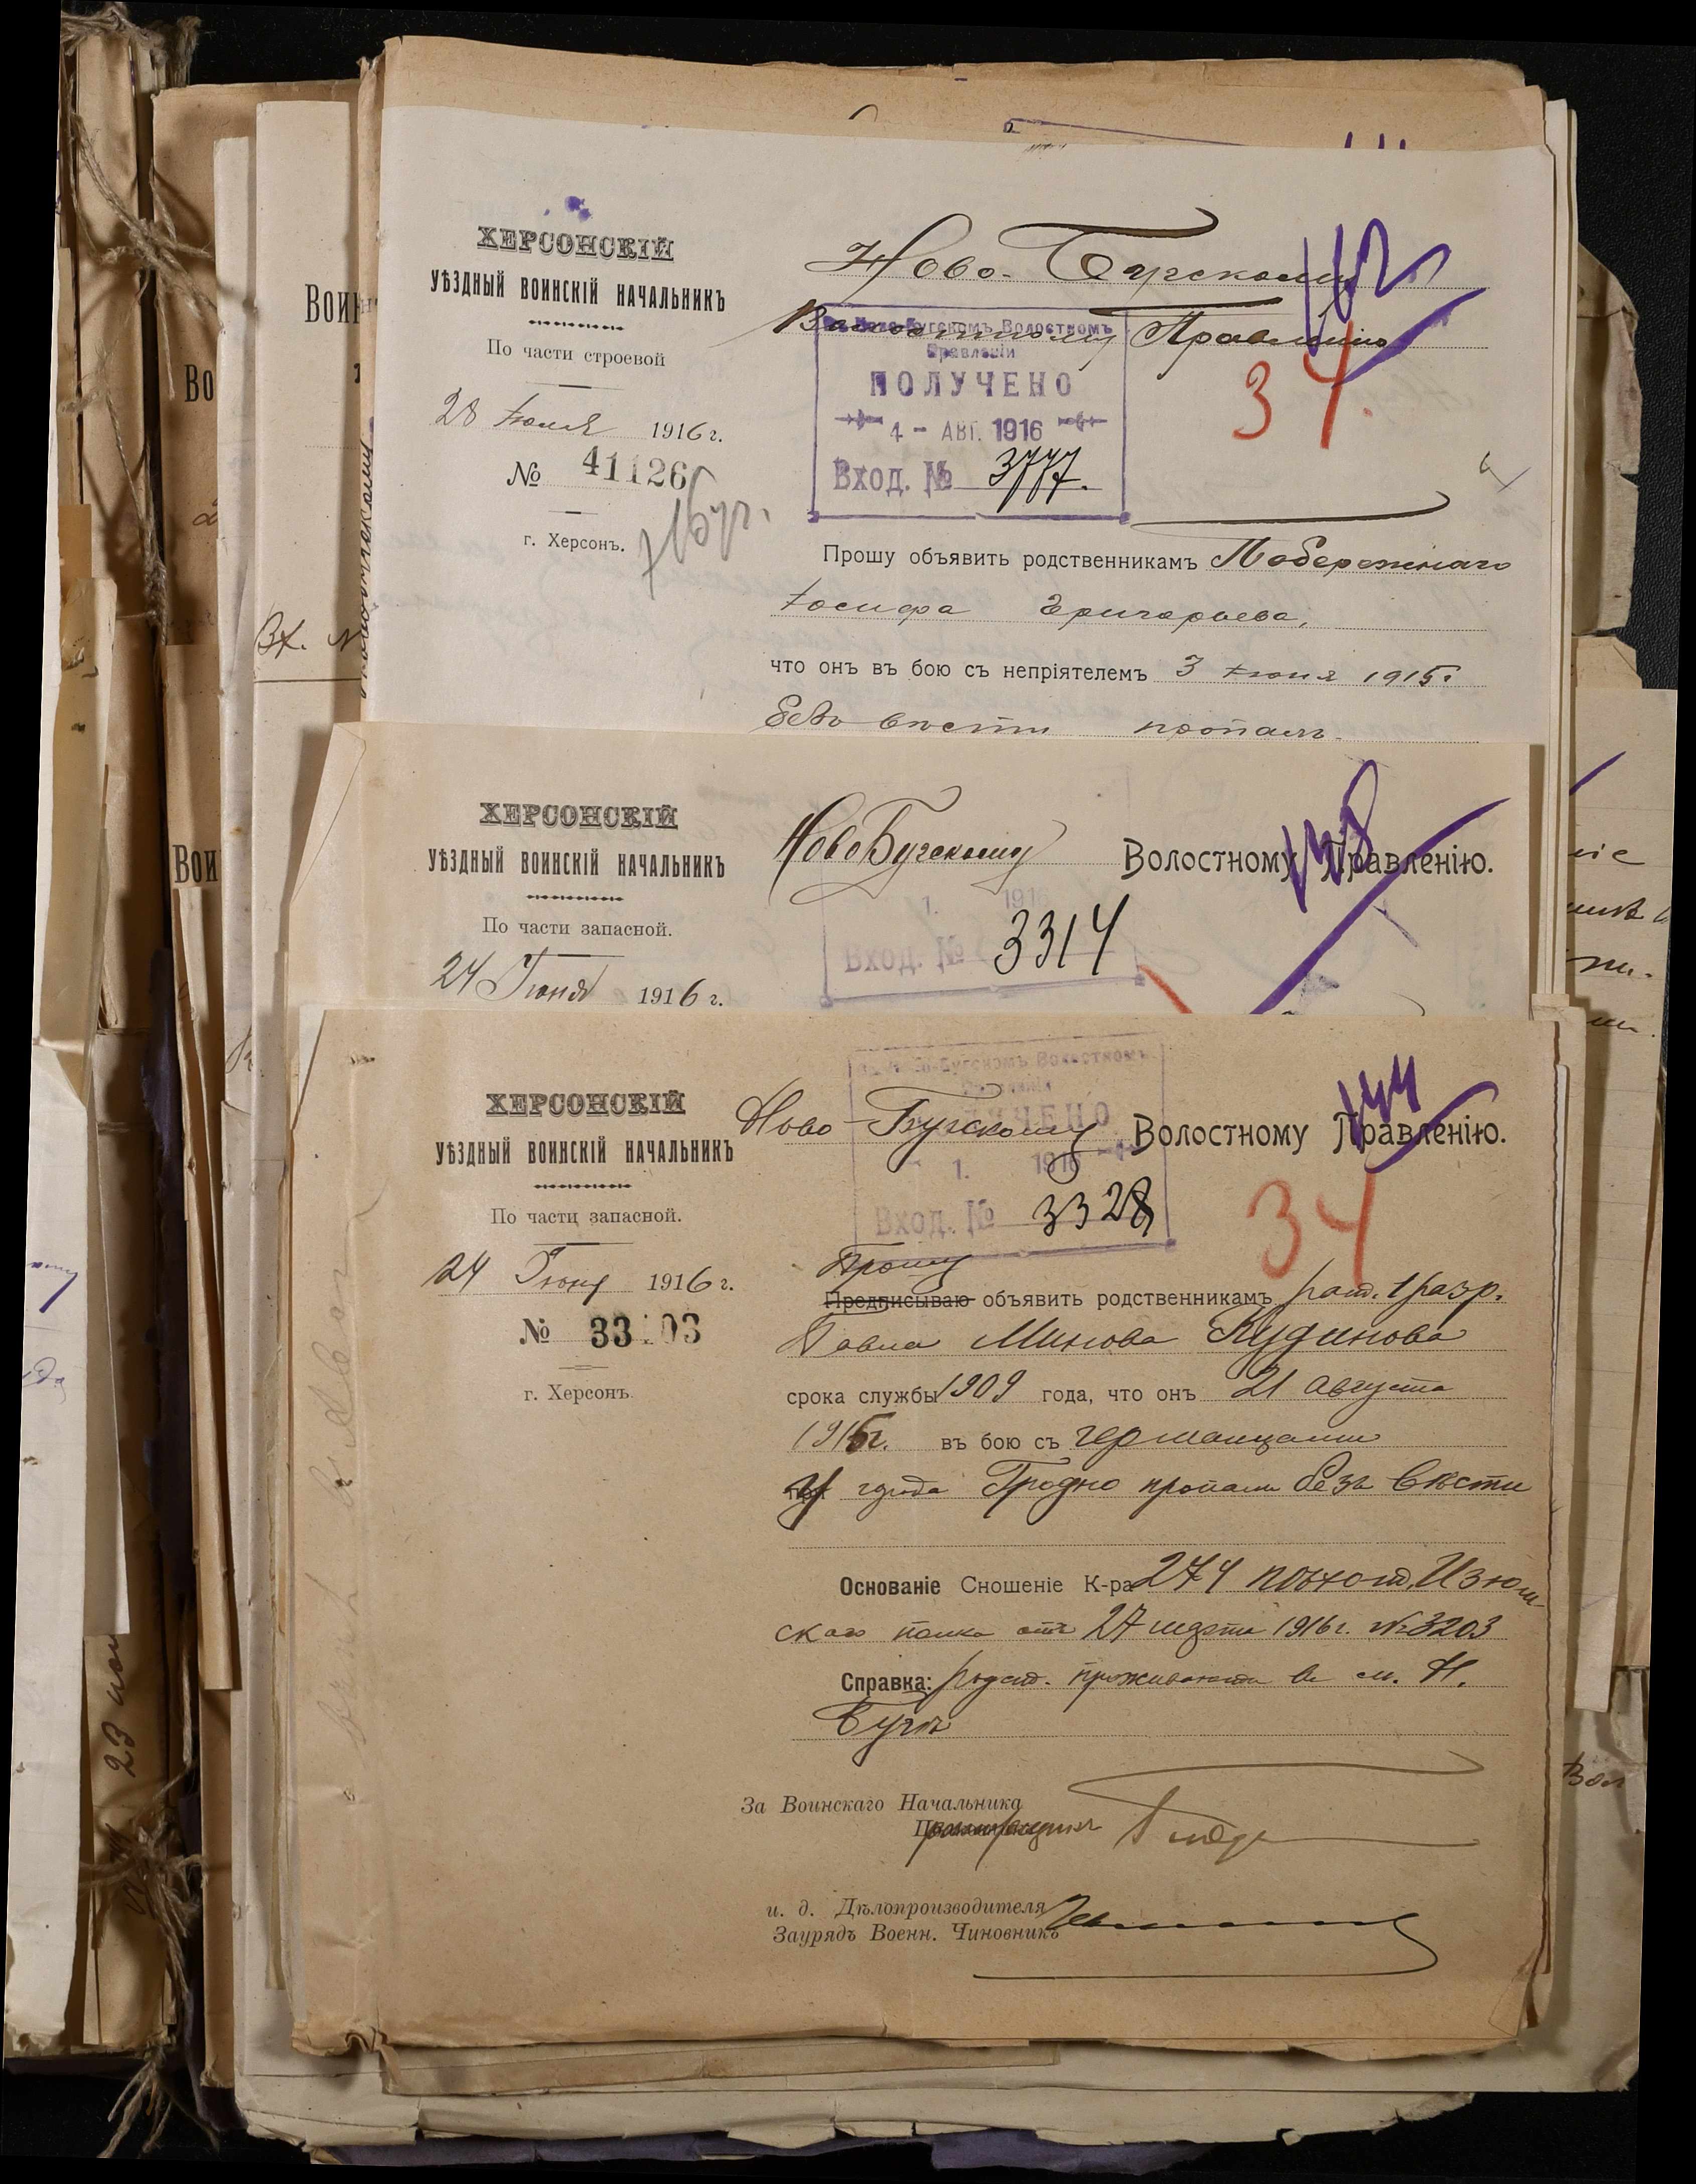 ХЕРСОНСКІЙ
УѢЗДНЫЙ ВОИНСКІЙ НАЧАЛЬНИКЪ
По части строевой
28 Іюля 1916 г.
№ 41126
г. Херсонъ.
Ново-Бугскому
Волостному Правленію
Ново-Бугскомъ Волостномъ
Правленіи
ПОЛУЧЕНО
4 - АВГ. 1916
Вход. № 3777.
34.
Прошу объявить родственникамъ Побережнаго
Іосифа Григорьева,
что онъ въ бою съ непріятелемъ 3 Іюня 1915 г.
безъ вѣсти пропалъ.
ХЕРСОНСКІЙ
УѢЗДНЫЙ ВОИНСКІЙ НАЧАЛЬНИКЪ
По части запасной.
24 Іюня 1916 г.
НовоБугскому Волостному Правленію.
1. 1916
Вход. № 3314
ХЕРСОНСКІЙ
УѢЗДНЫЙ ВОИНСКІЙ НАЧАЛЬНИКЪ
По части запасной.
24 Іюня 1916 г.
№ 33103
г. Херсонъ
Ново-Бугскому Волостному Правленію.
1. 1916
Вход. № 3328
34
Прошу
Предписываю объявить родственникамъ рат. 1 разр.
Павла Минова Кудинова
срока службы 1909 года, что онъ 21 августа
1915 г. въ бою съ германцами
у города Гродно пропалъ безъ вѣсти
Основаніе Сношеніе К-ра 274 пѣхот. Изюм-
скаго полка отъ 27 марта 1916 г. № 3203
Справка: родст. проживаютъ въ м. Н.
Бугѣ
За Воинскаго Начальника
и. д. Дѣлопроизводителя
Заурядъ Военн. Чиновникъ